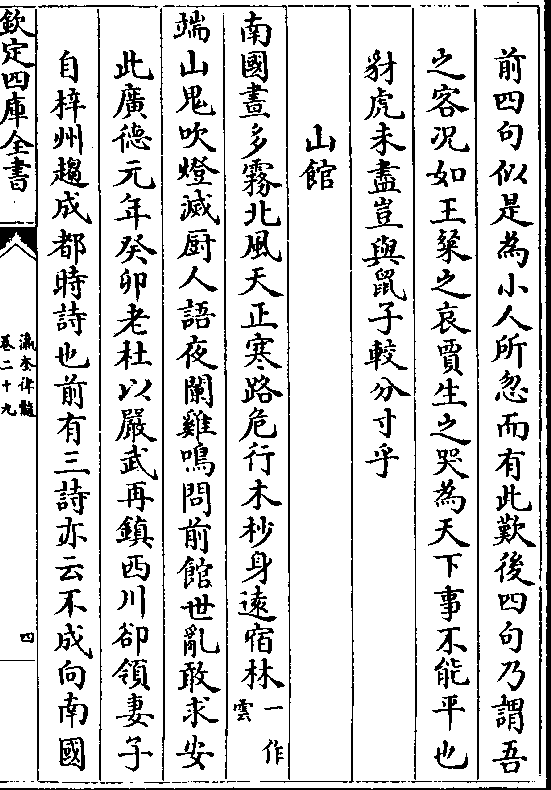 前四句似是為小人所忽而有此歎後四句乃謂吾
之客况如王粲之哀賈生之哭為天下事不能平也
豺虎未盡豈與鼠子較分寸乎
山館
南國晝多霧北風天正寒路危行木杪身逺宿林一作雲
端山鬼吹燈滅厨人語夜闌雞鳴問前館世亂敢求安
此廣德元年癸卯老杜以嚴武再鎮西川卻領妻子
自梓州趨成都時詩也前有三詩亦云不成向南國
欽定四庫全書
瀛奎律髓
卷二十九
四